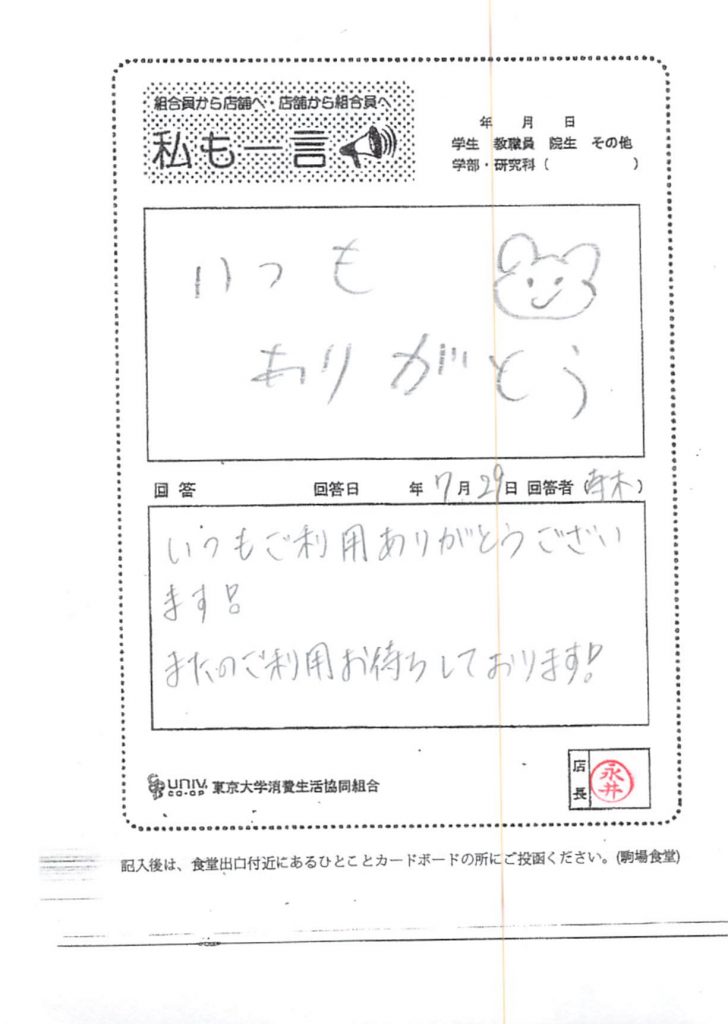 組合員から店舗へ・店舗から組合員へ
私も一言
年 月 日
学生 教職員 院生 その他
学部・研究科 ( )
いつも
ありがとう
回答 回答日 年 7月 29日 回答者 ( 木)
いつもご利用ありがとうござい
ます!!
またのご利用お待ちしております!!
UNIV. CO-OP 東京大学消費生活協同組合
店長 永井
記入後は、食堂出口付近にあるひとことカードボードの所にご投函ください。(駒場食堂)